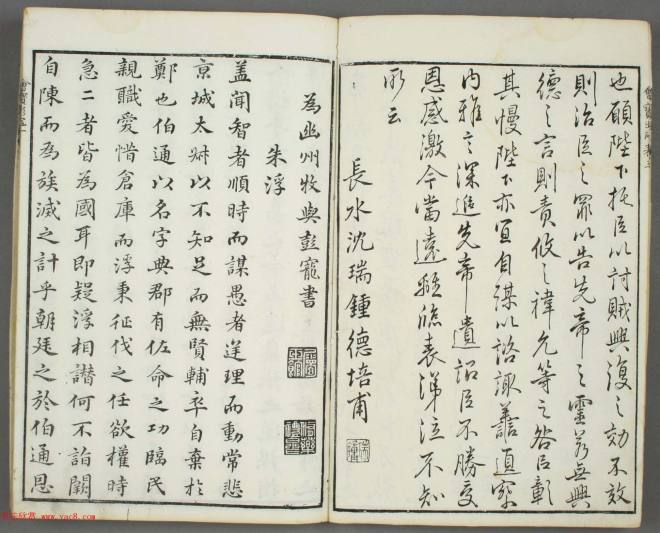 也願陛下托臣以討賊興復之効不效
則治臣之罪以告先帝之靈若無興
德之言則責攸之禕允等之咎以彰
其慢陛下亦宜自謀以諮諏善道察
內雅言深追先帝遺詔臣不勝受
恩感激今當遠離臨表涕泣不知
所云
長水沈瑞鍾德培甫
為幽州牧與彭寵書
朱浮
蓋聞智者順時而謀愚者逆理而動常悲
京城太叔以不知足而無賢輔卒自棄於
鄭也伯通以名字典郡有佐命之功臨民
親職愛惜倉庫而浮秉征伐之任欲權時
急二者皆為國耳即疑浮相譖何不詣闕
自陳而為族滅之計乎朝廷之於伯通恩
www.yac8.com